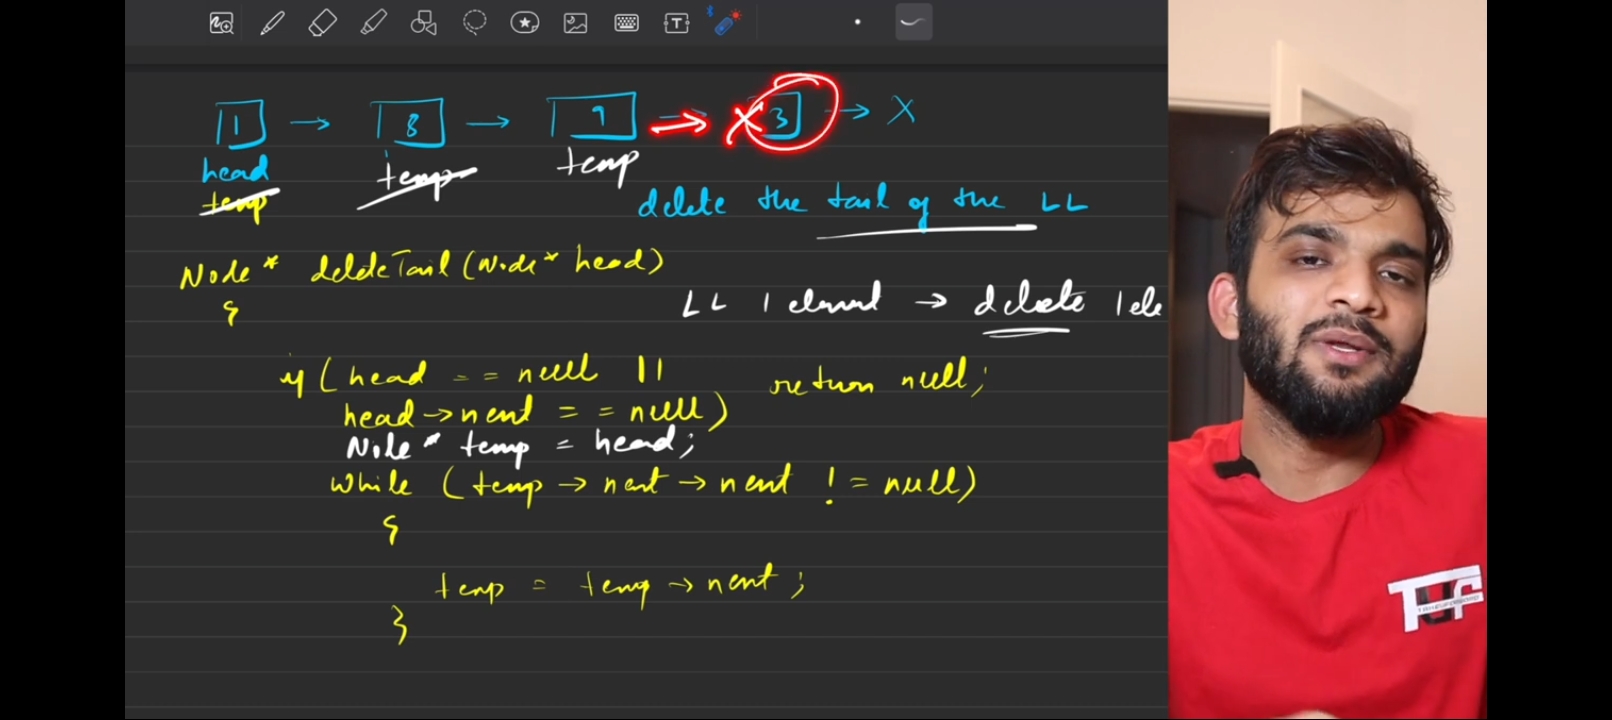 1 → 8 → 9 → X 3 → X
head temp temp
temp
delete the tail of the LL
Node* deleteTail(Node* head)
{
LL 1 element → delete 1 ele
if (head == null || return null;
head → next == null)
Node* temp = head;
while (temp → next → next != null)
{
temp = temp → next;
}
TUF